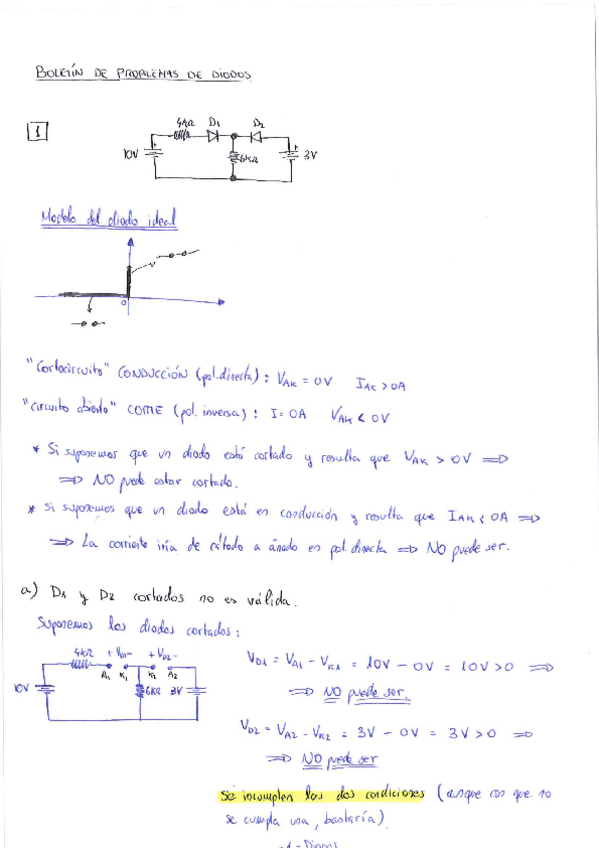 BOLETÍN DE PROBLEMAS DE DIODOS
1
4kΩ D1 D2
10V + 6kΩ + 3V
Modelo del diodo ideal
0
"Cortocircuito" CONDUCCIÓN (pol. directa) : VAK = 0V IAK > 0A
"circuito abierto" CORTE (pol. inversa) : I = 0A VAK < 0V
* Si suponemos que un diodo está cortado y resulta que VAK > 0V ⇒
⇒ NO puede estar cortado.
* Si suponemos que un diodo está en conducción y resulta que IAK < 0A ⇒
⇒ La corriente iría de cátodo a ánodo en pol. directa ⇒ NO puede ser.
a) D1 y D2 cortados no es válida.
Suponemos los diodos cortados :
4kΩ + VD1 - + VD2 -
A1 K1 K2 A2
10V 6kΩ 3V
VD1 = VA1 - VK1 = 10V - 0V = 10V > 0 ⇒
⇒ NO puede ser.
VD2 = VA2 - VK2 = 3V - 0V = 3V > 0 ⇒
⇒ NO puede ser
Se incumplen las dos condiciones (aunque con que no
se cumpla una, bastaría).
-1- Diodos